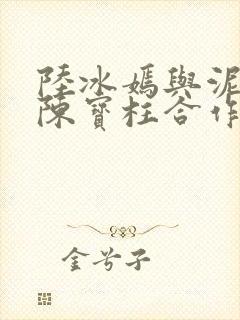 陸冰嫣與泥
陳寶柱合作
金兮子